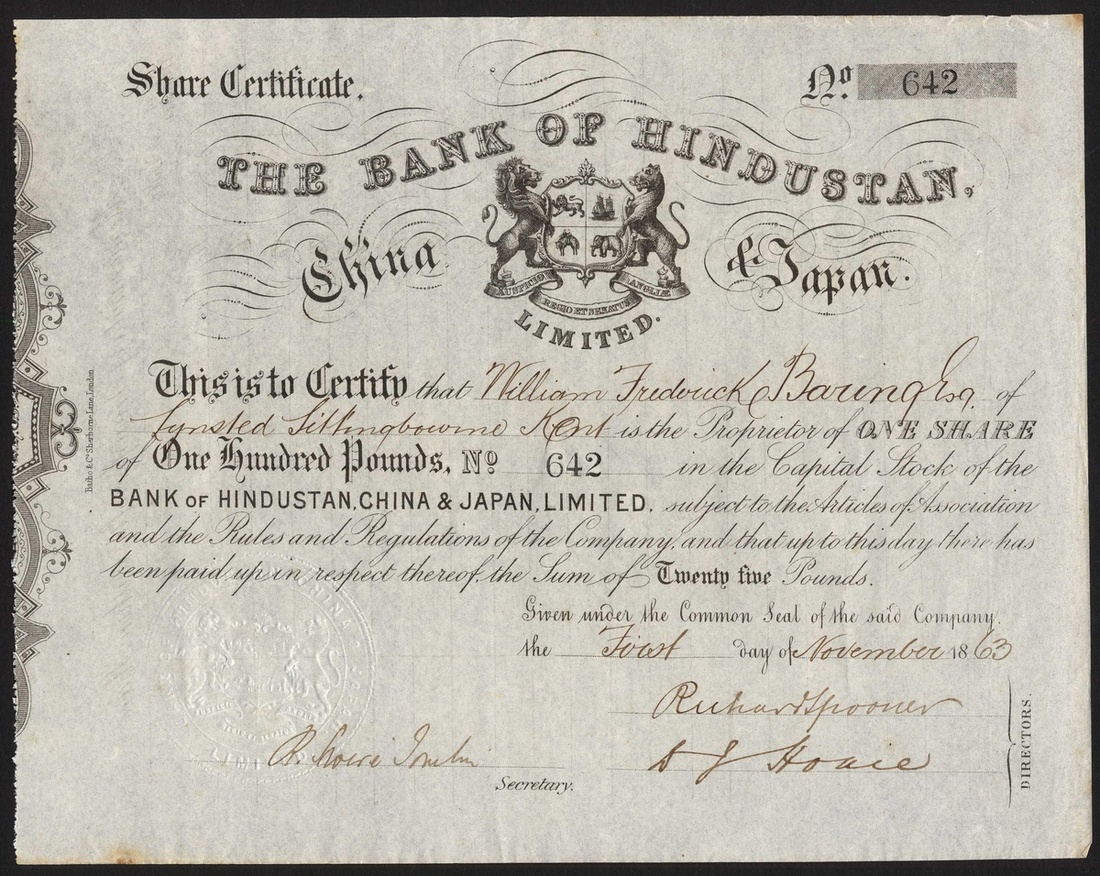 Share Certificate.
No. 642
THE BANK OF HINDUSTAN,
China & Japan.
AUSPICIO REGIO ET SENATUS ANGLIÆ
LIMITED.
This is to Certify that William Frederick Baring Esq. of
Lynsted Sittingbourne Kent is the Proprietor of ONE SHARE
of One Hundred Pounds, No 642 in the Capital Stock of the
BANK OF HINDUSTAN, CHINA & JAPAN, LIMITED. subject to the Articles of Association
and the Rules and Regulations of the Company, and that up to this day there has
been paid up in respect thereof, the Sum of Twenty five Pounds.
Given under the Common Seal of the said Company.
the First day of November 1863
Richard Spooner
Secretary.
DIRECTORS.
Batho & Co. Sherborne Lane, London